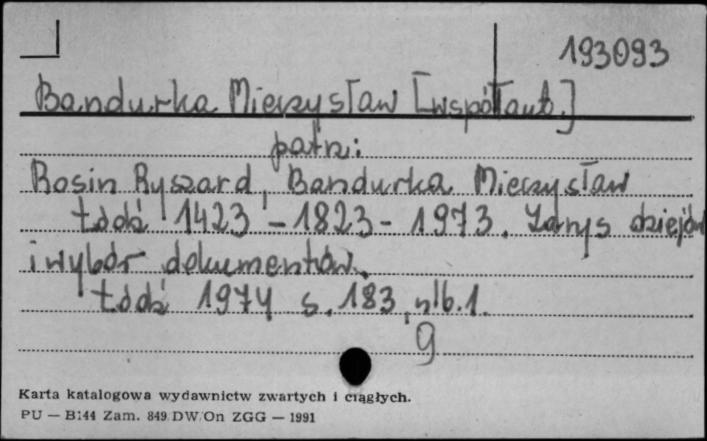 193093
Bandurka Mieczysław [współaut.]
patrz:
Rosin Ryszard, Bandurka Mieczysław
Łódź 1423 - 1823 - 1973. Zarys dziejów
i wybór dokumentów.
Łódź 1974 s. 183, nlb. 1.
9
Karta katalogowa wydawnictw zwartych i ciągłych.
PU — B144 Zam. 849 DW/On ZGG — 1991